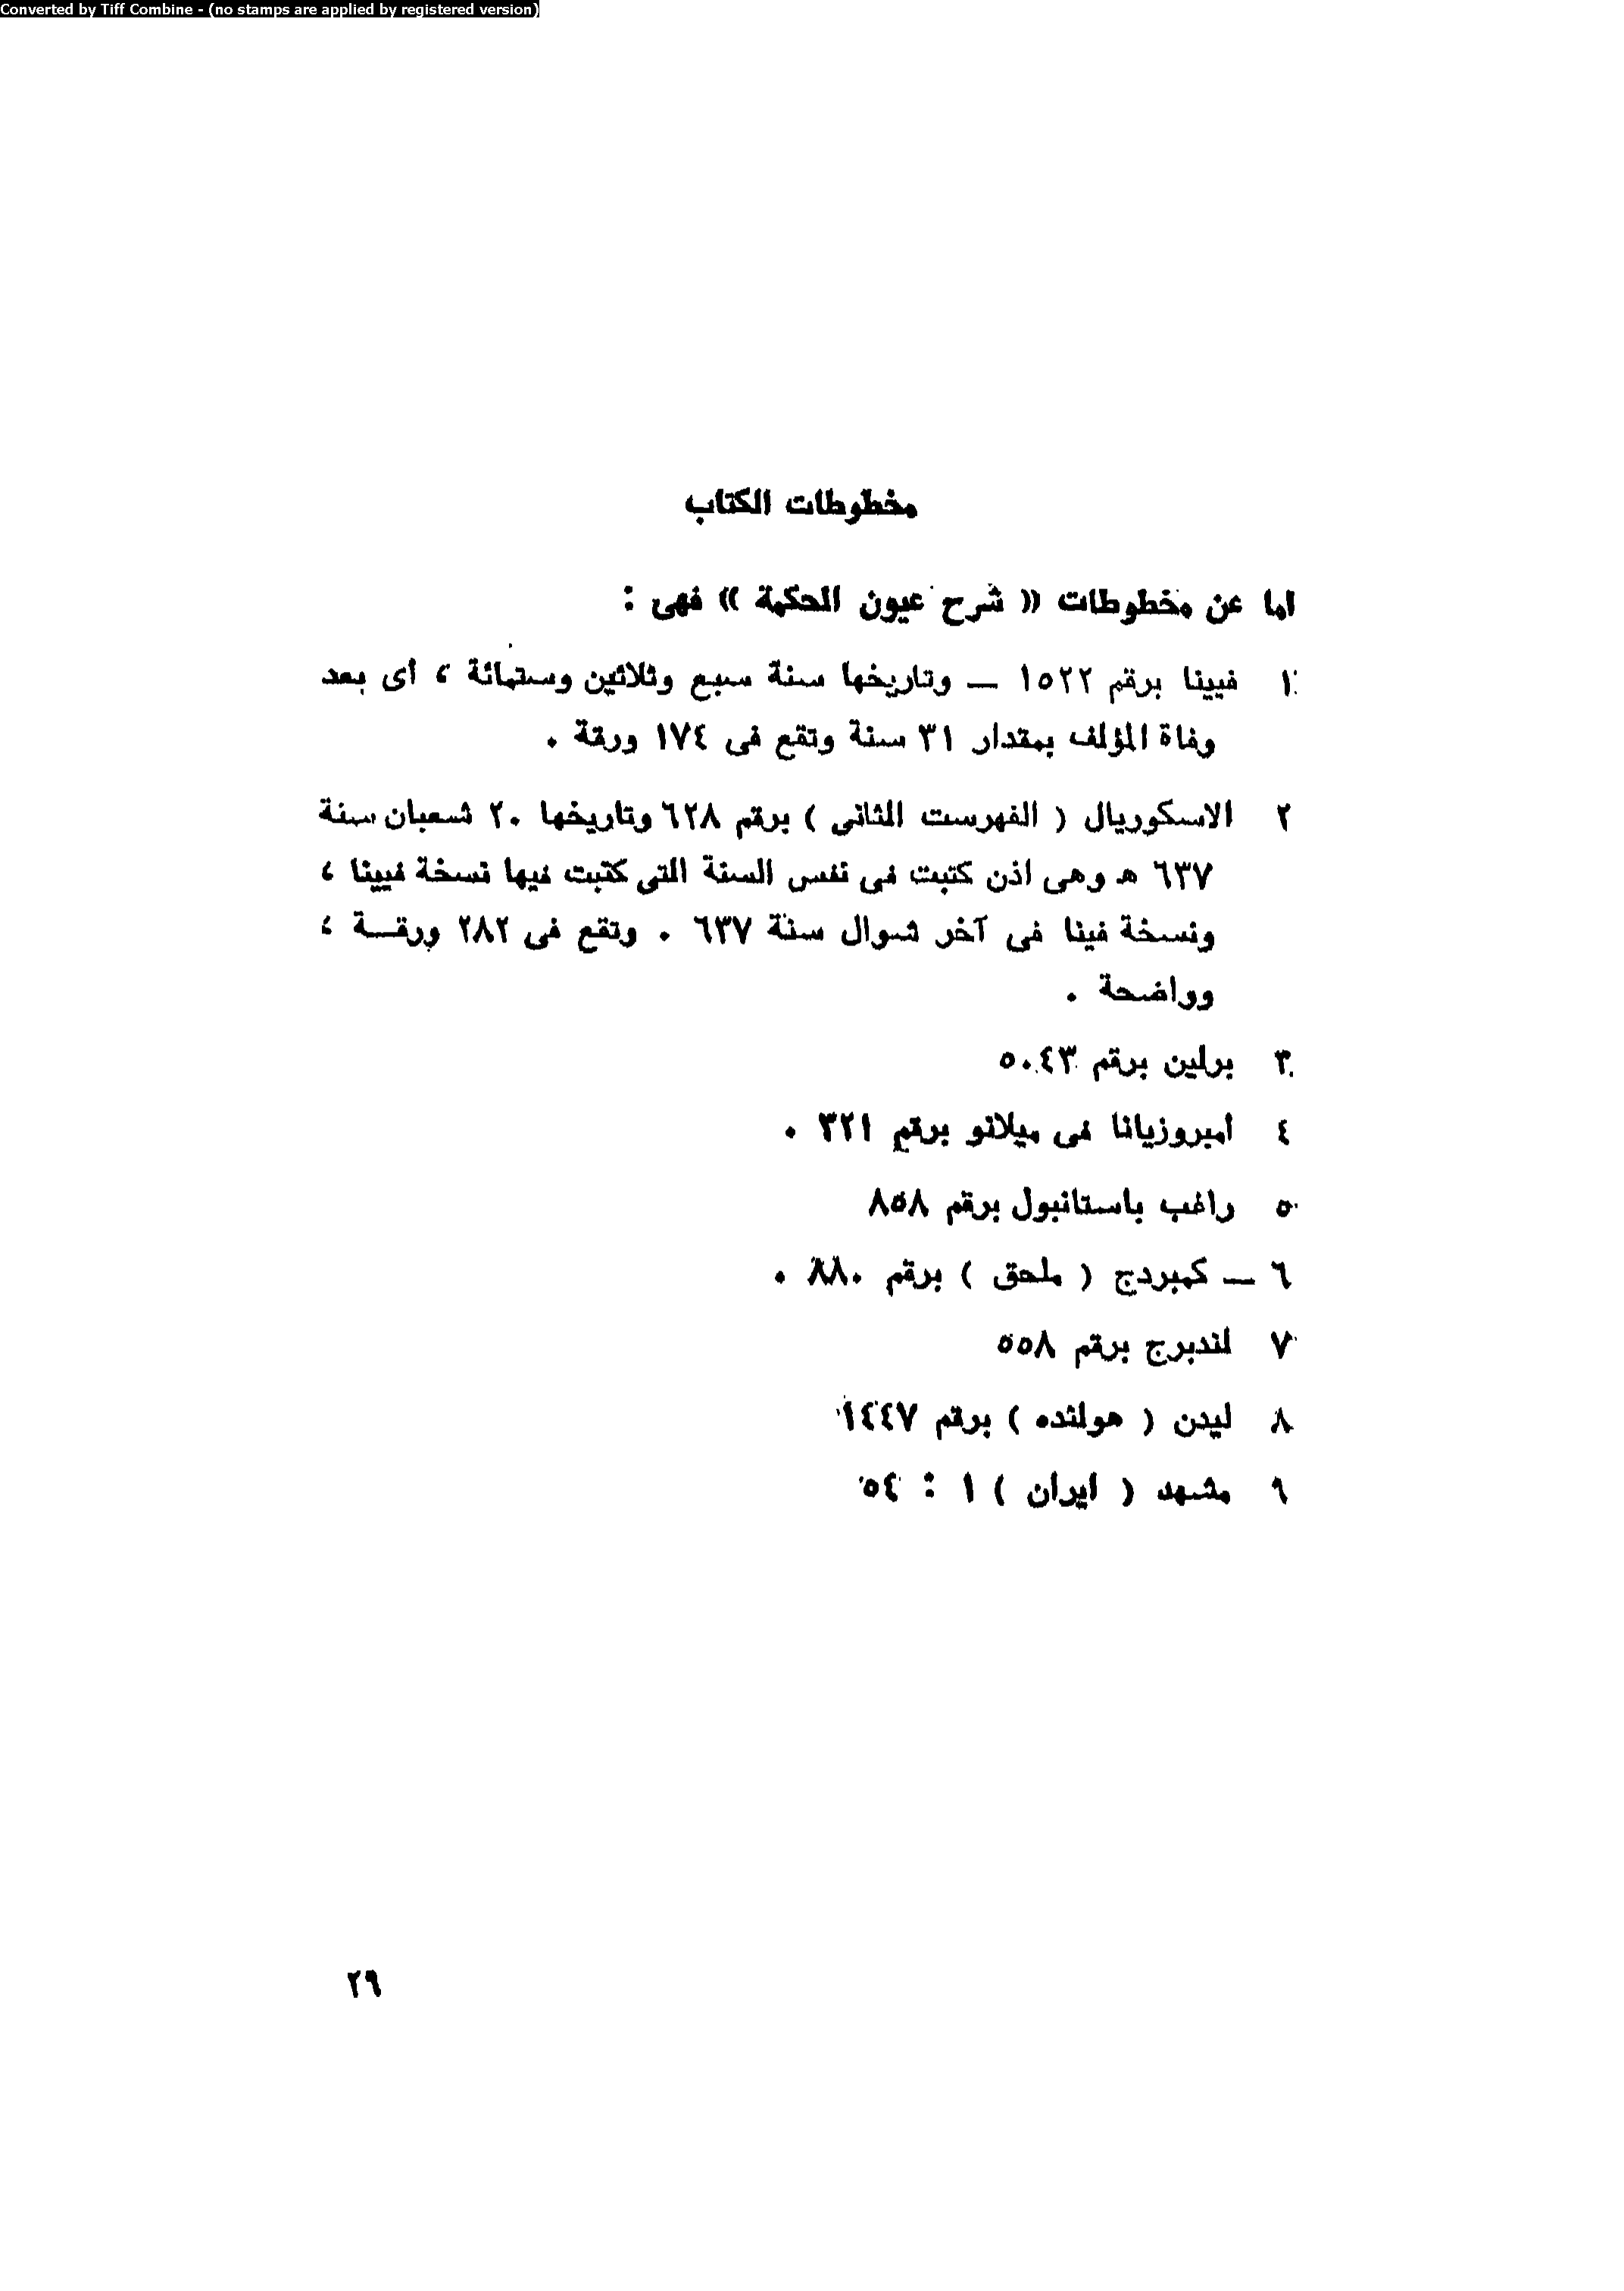 Converted by Tiff Combine - (no stamps are applied by registered version)
مخطوطات الكتاب
اما عن مخطوطات « شرح عيون الحكمة » فهى :
١ فيينا برقم ١٥٢٢ — وتاريخها سنة سبع وثلاثين وستمائة ، أى بعد
وفاة المؤلف بمقدار ٣١ سنة وتقع فى ١٧٤ ورقة .
٢ الاسكوريال ( الفهرست الثانى ) برقم ٦٢٨ وتاريخها ٢٠ شعبان سنة
٦٣٧ هـ وهى اذن كتبت فى نفس السنة التى كتبت فيها نسخة فيينا ،
ونسخة فينا فى آخر شوال سنة ٦٣٧ . وتقع فى ٢٨٢ ورقــة ،
وواضحة .
٣ برلين برقم ٥٠٤٣
٤ امبروزيانا فى ميلانو برقم ٣٢١ .
٥ راغب باستانبول برقم ٨٥٨
٦ — كمبردج ( ملحق ) برقم ٨٨٠ .
٧ لندبرج برقم ٥٥٨
٨ ليدن ( هولنده ) برقم ١٤٤٧
٩ مشهد ( ايران ) ١ : ٥٤
٢٩